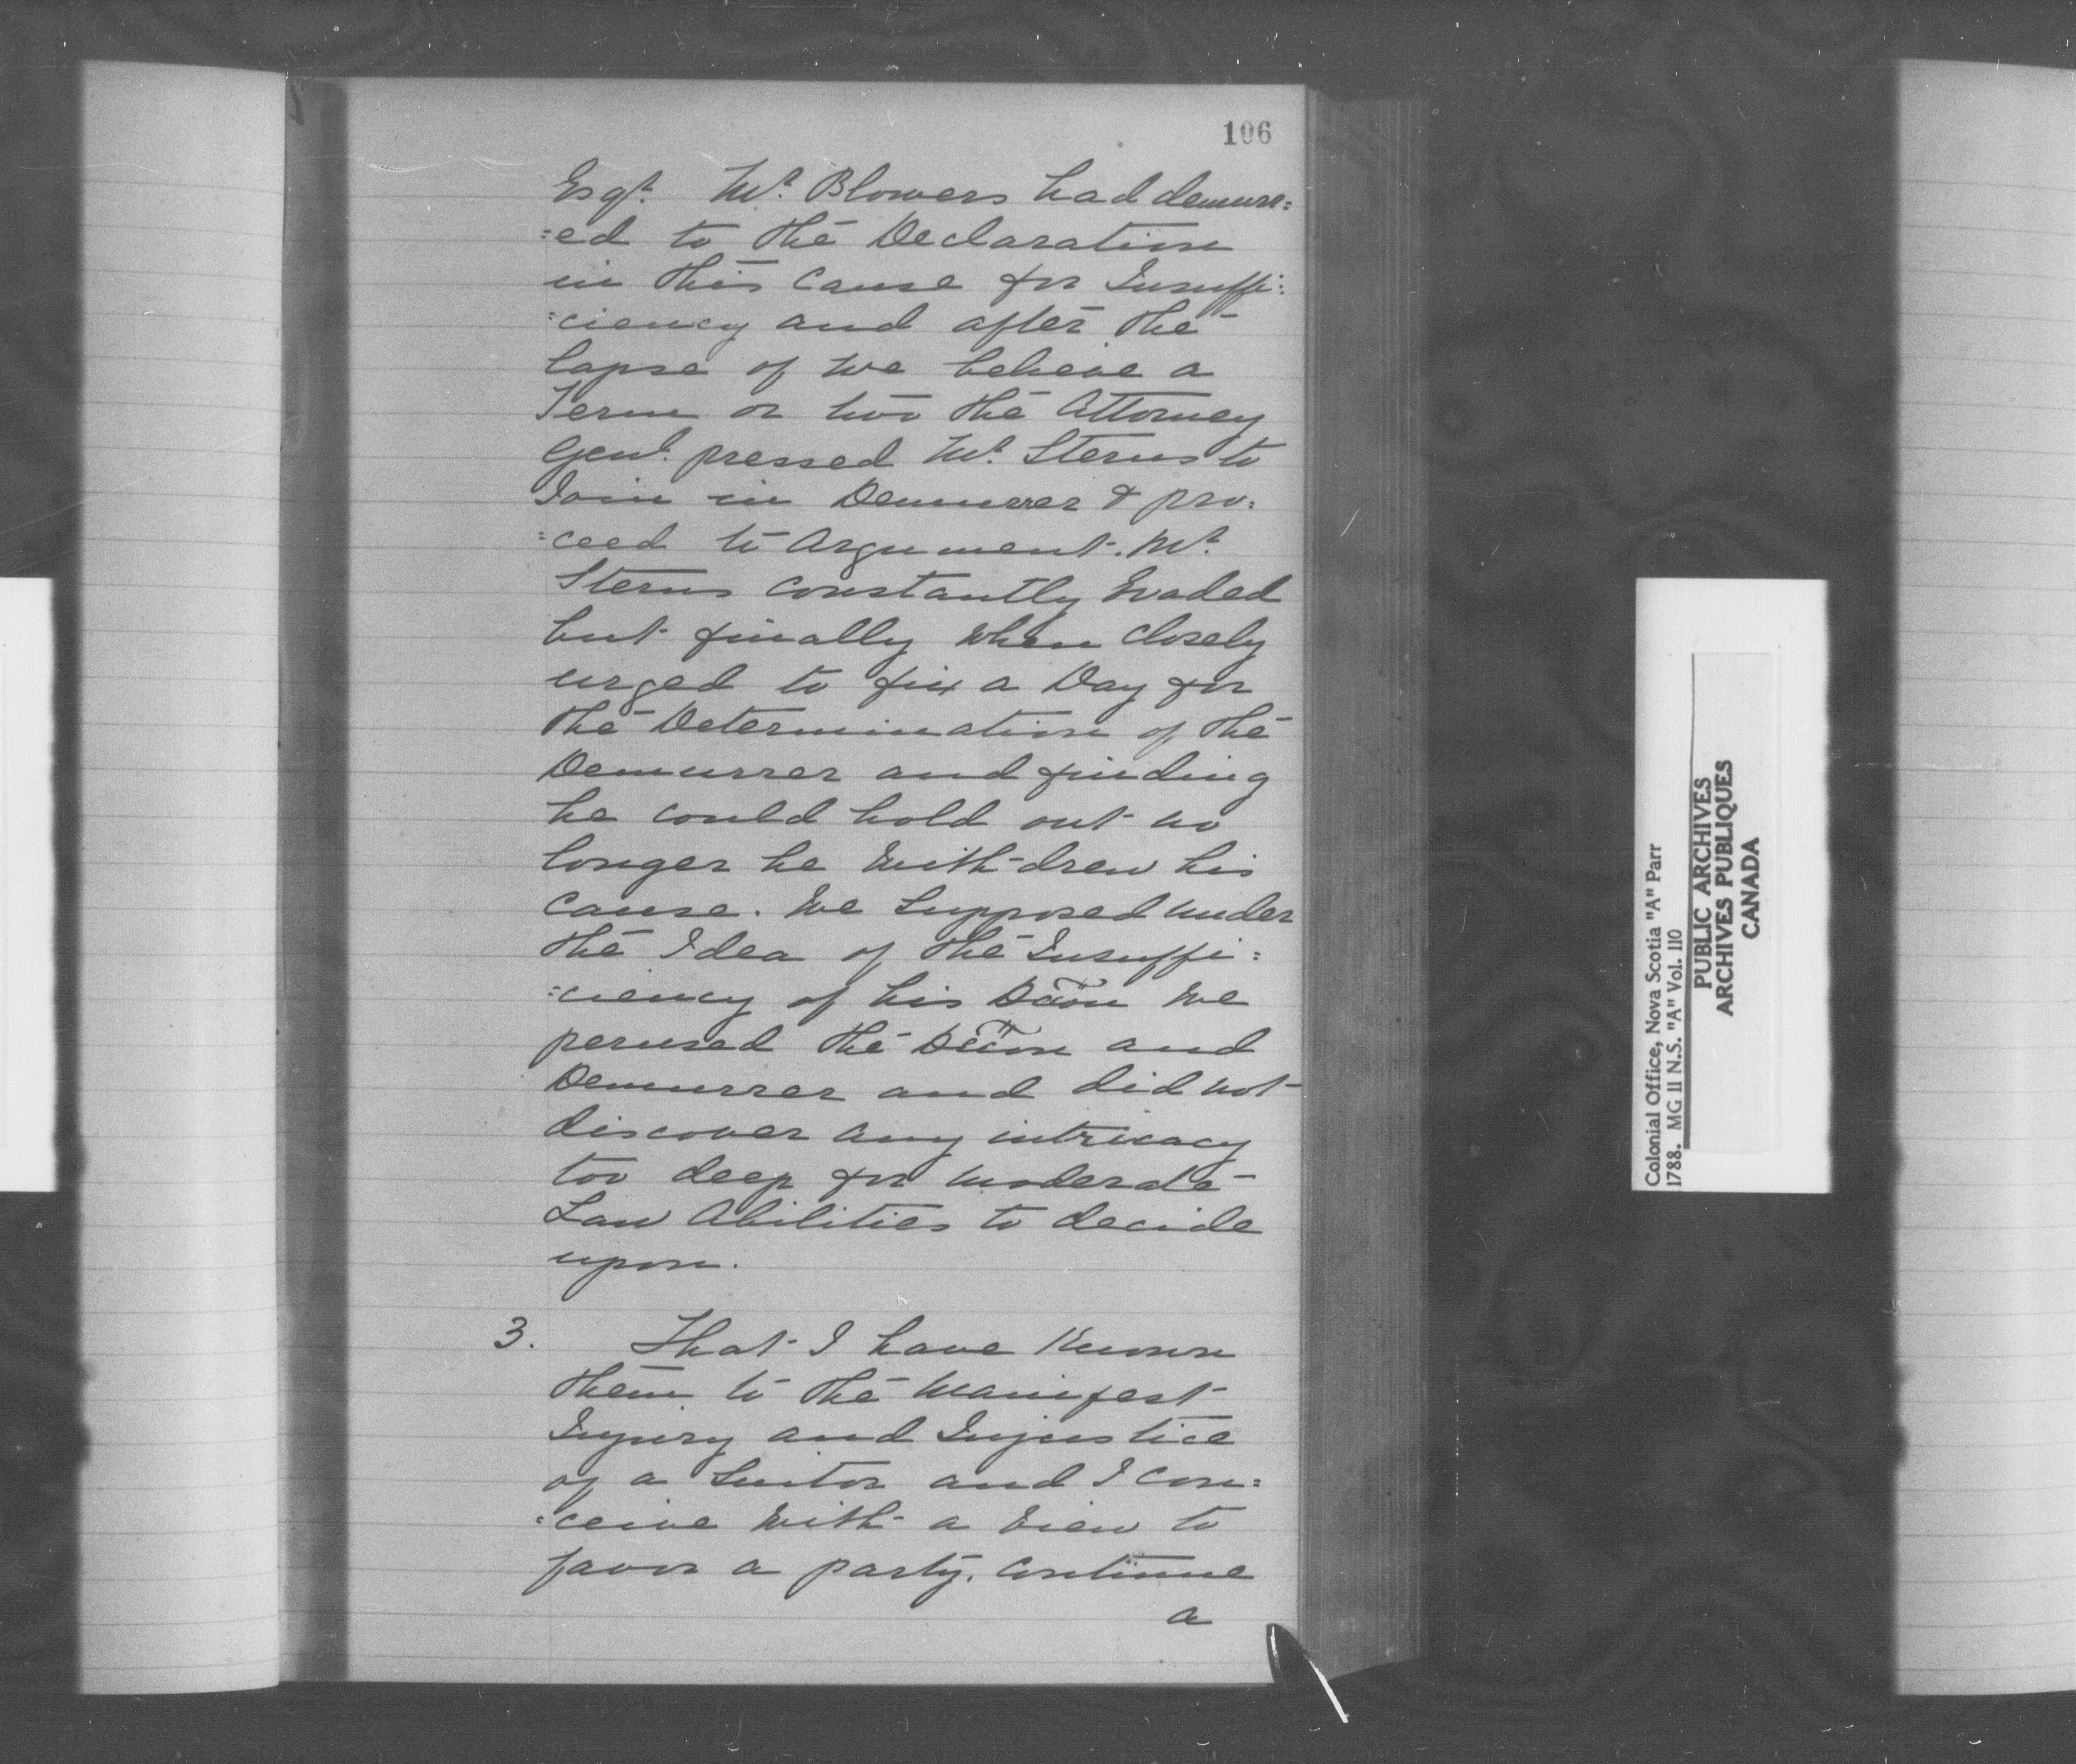 106
Esqr. Mr. Blowers had demurr=
=ed to the Declaration
in this Cause for Insuffi=
=ciency and after the
lapse of we believe a
Term or two the Attorney
Genl. pressed Mr. Sterns to
Join in Demurrer & pro=
=ceed to Argument. Mr.
Sterns constantly Evaded
but finally when closely
urged to fix a Day for
the Determination of the
Demurrer and finding
he could hold out no
longer he with-drew his
Cause. We Supposed under
the Idea of the Insuffi=
=ciency of his Dōōn We
perused the Dōōn and
Demurrer and did not
discover any intricacy
too deep for moderate
Law Abilities to decide
upon.
3. That I have Known
them to the Manifest
Injury and Injustice
of a Suitor and I con=
=ceive with a view to
favor a party. Continue
a
Colonial Office, Nova Scotia "A" Parr
1788. MG 11 N.S. "A" Vol. 110
PUBLIC ARCHIVES
ARCHIVES PUBLIQUES
CANADA